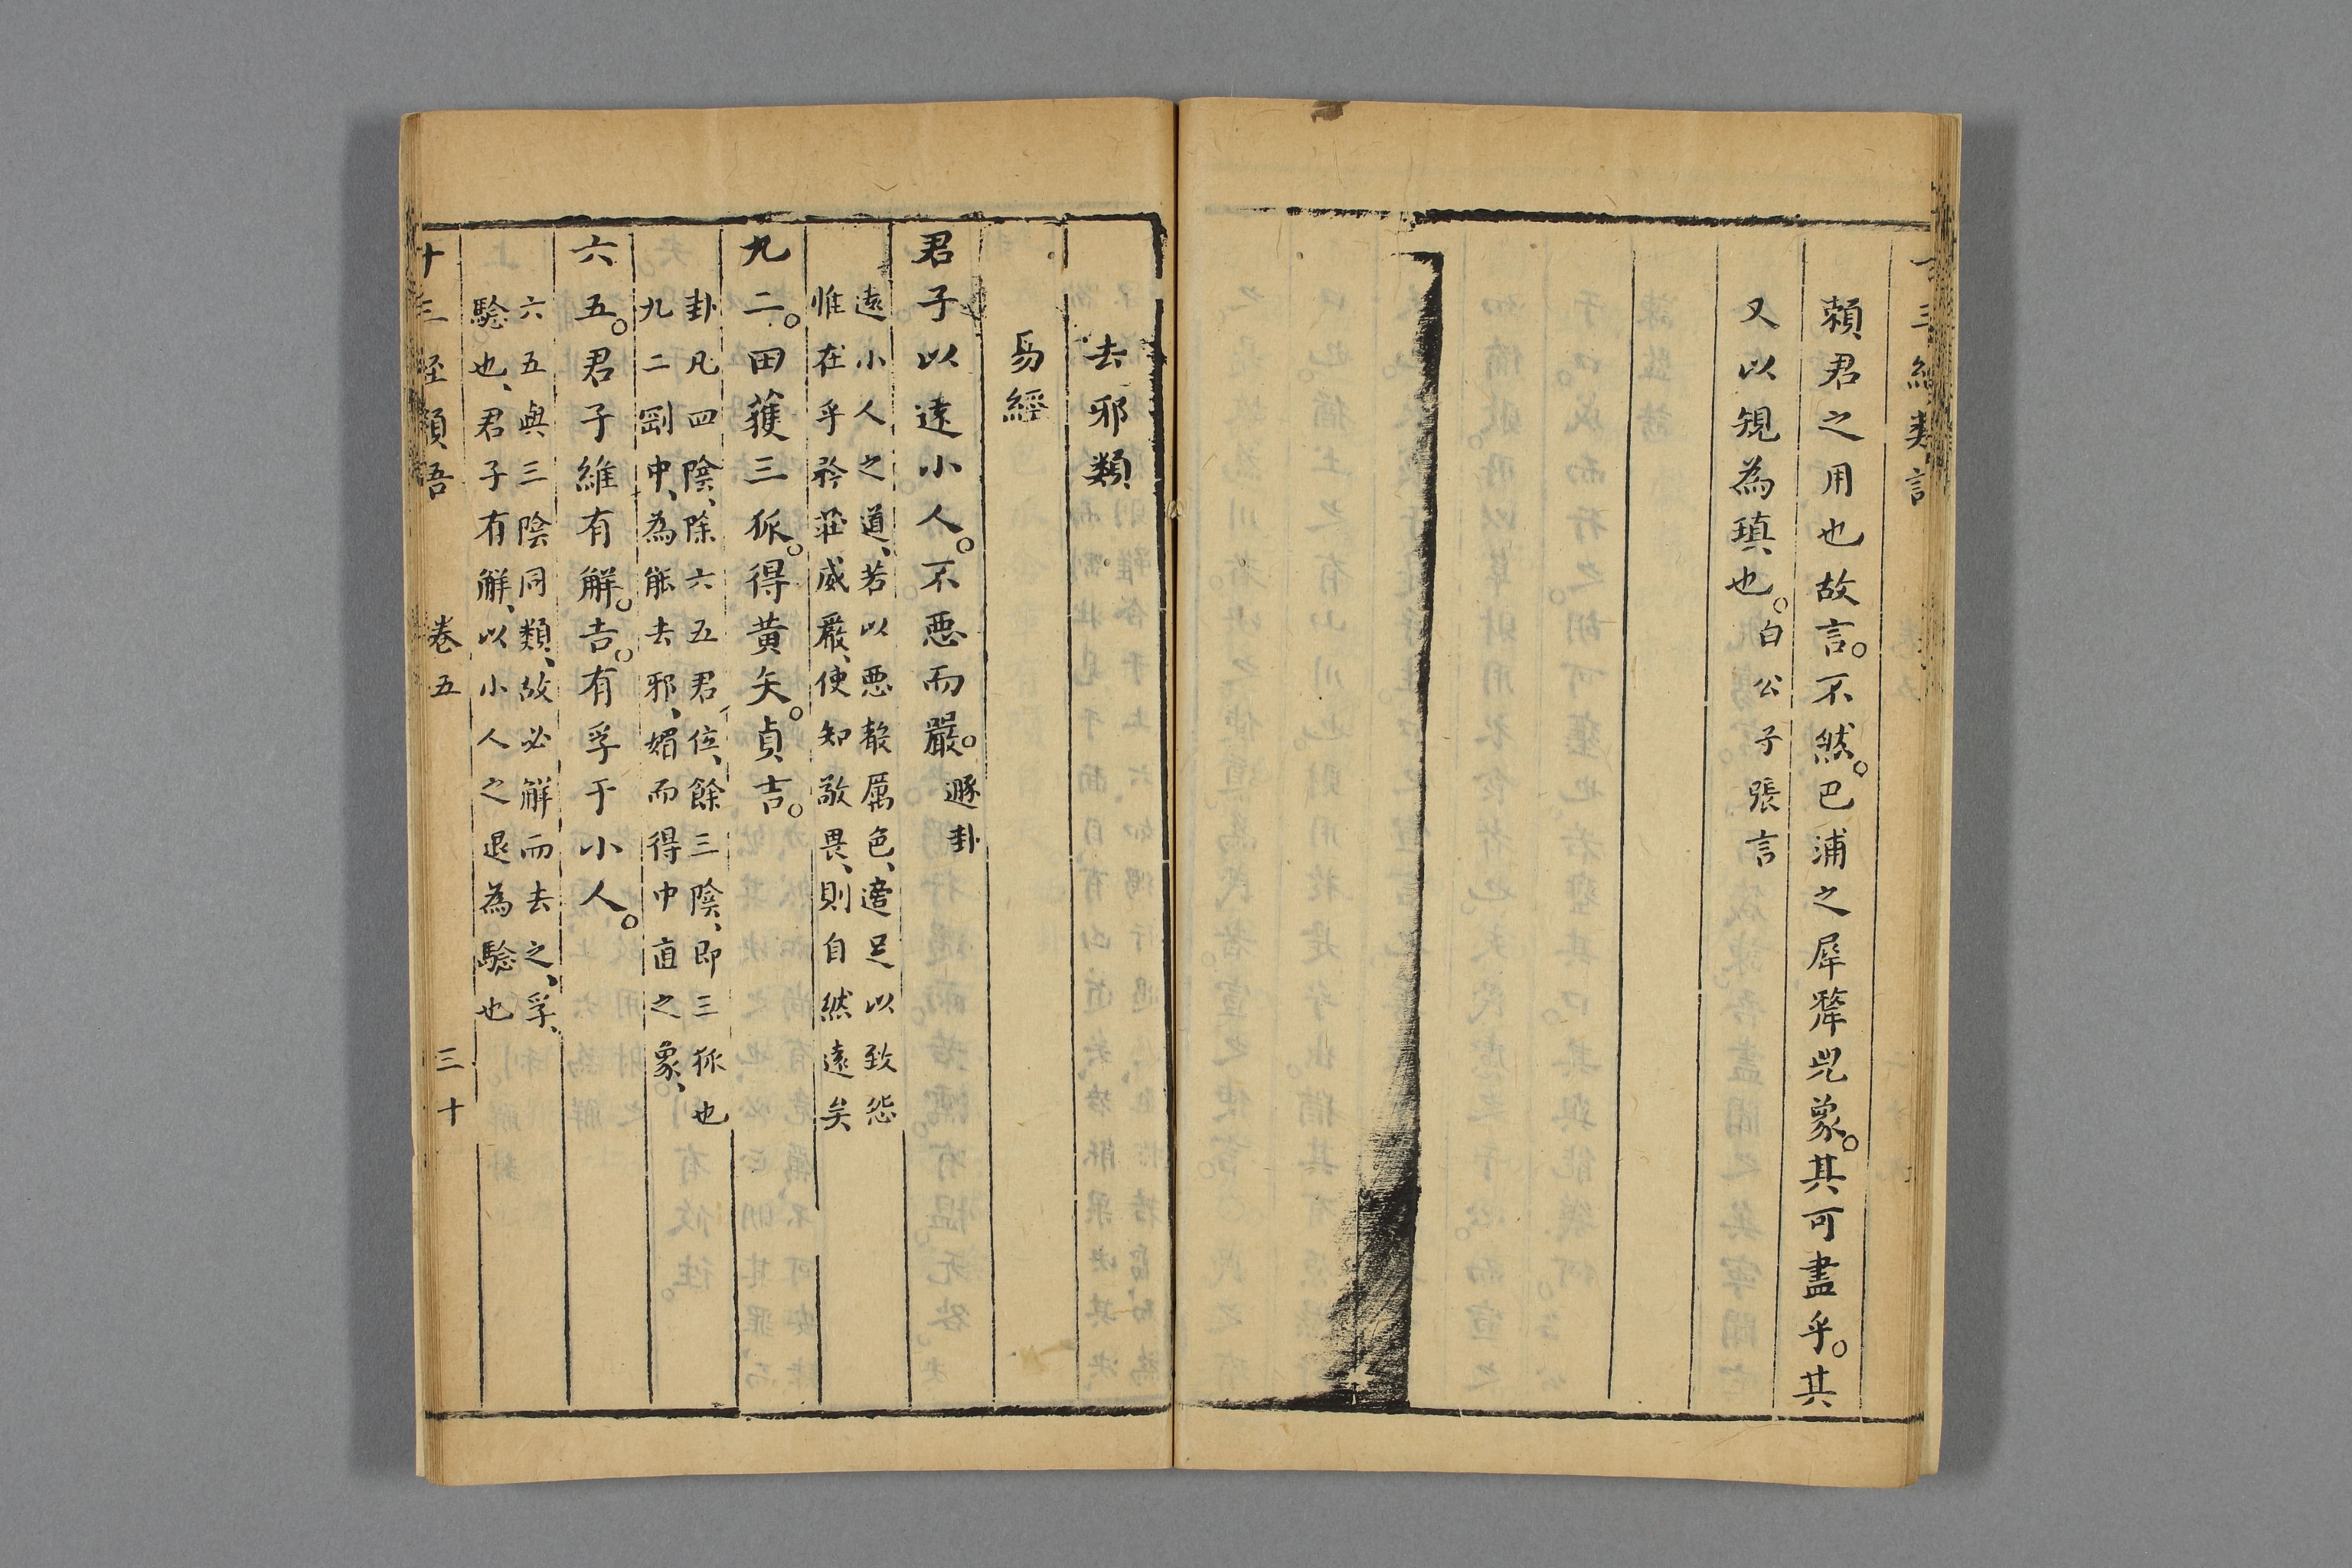 十三經類語
賴君之用也故言。不然。巴浦之犀犛兕象。其可盡乎。其
又以䂓為瑱也。白公子張言
去邪類
易經
君子以遠小人。不惡而嚴。遯卦
遠小人之道、若以惡聲厲色、適足以致怨
惟在乎矜莊威嚴、使知敬畏、則自然遠矣
九二。田獲三狐。得黃矢。貞吉。
卦凡四陰、除六五君位、餘三陰、即三狐也
九二剛中、為能去邪、媚而得中直之象、
六五。君子維有解。吉。有孚于小人。
六五與三陰同類、故必解而去之、孚、
驗也、君子有解、以小人之退為驗也
十三經類語 卷五 三十